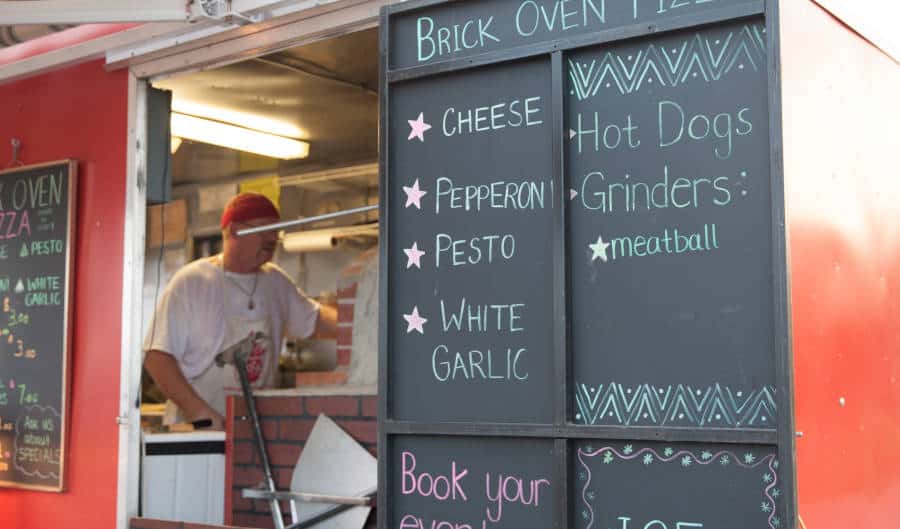 OVEN
PIZZA
PESTO
WHITE
GARLIC
3.00
Ask us
about
SPECIALS
BRICK OVEN PIZZ
CHEESE
PEPPERONI
PESTO
WHITE
GARLIC
Hot Dogs
Grinders:
meatball
Book your
event
ICE